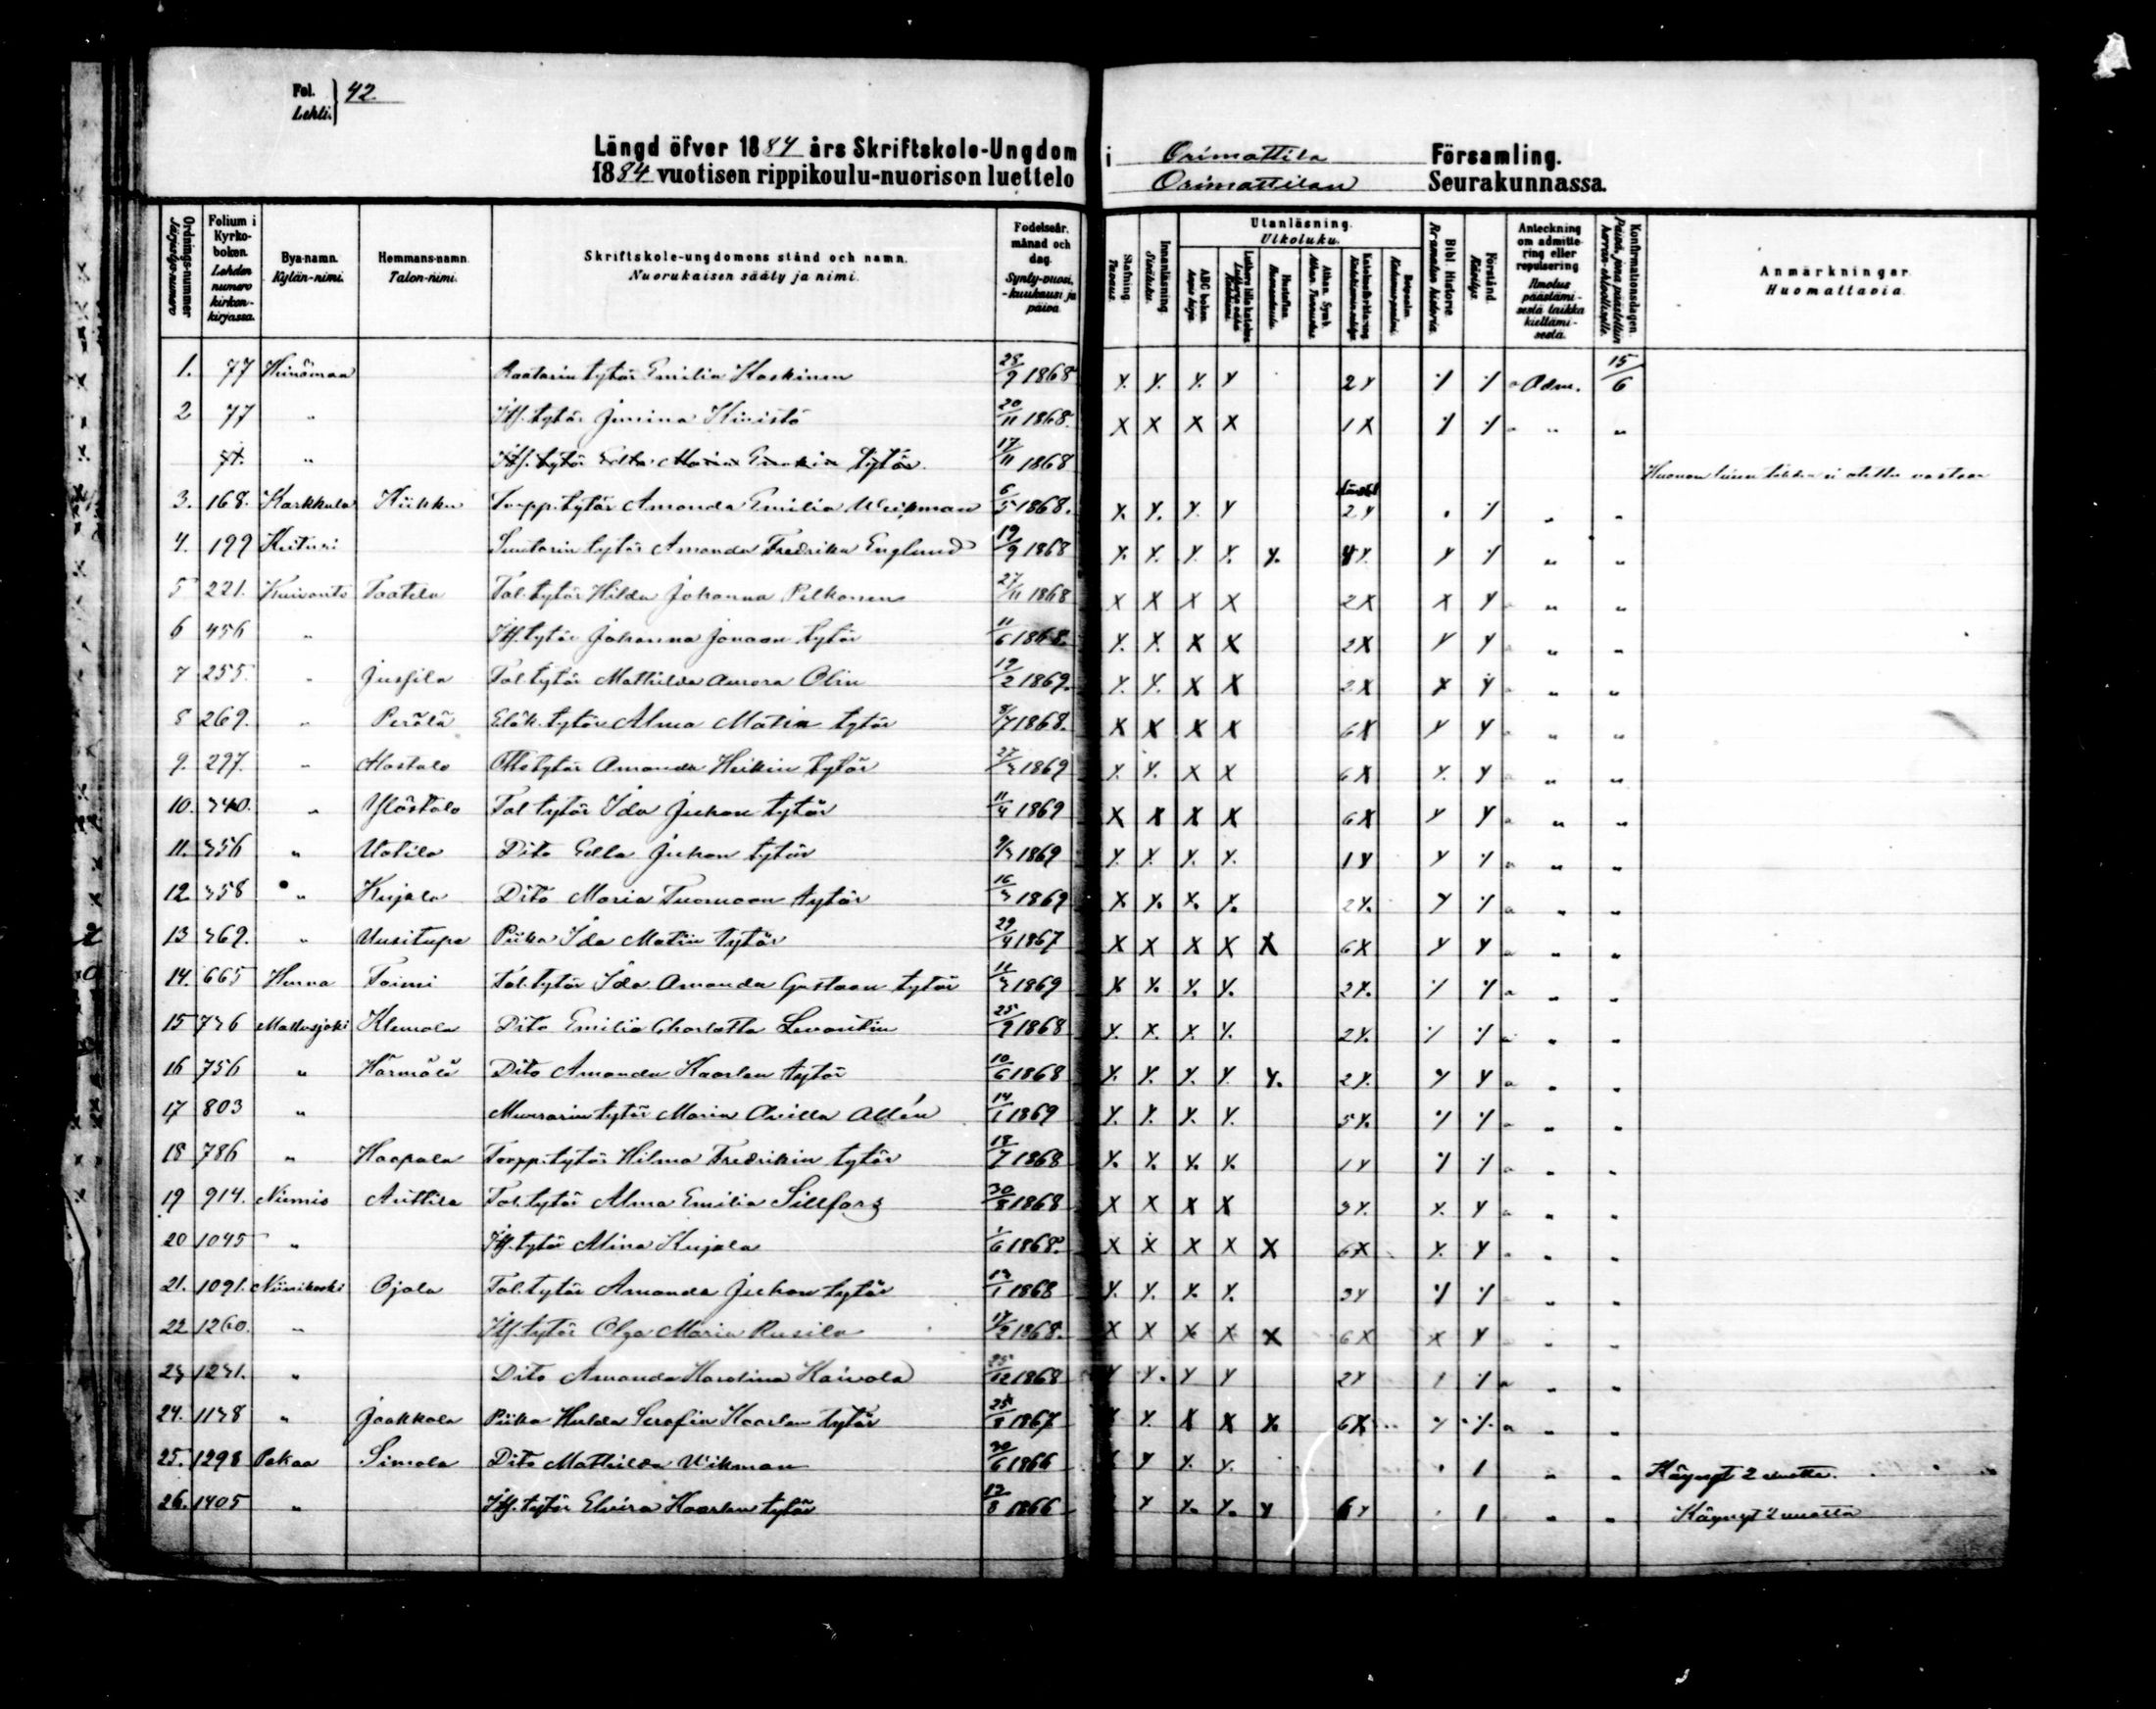 Fol. Lehti. } 42.
Längd öfver 1884 års Skriftskole-Ungdom i Orimattila Församling.
1884 vuotisen rippikoulu-nuorison luettelo Orimattilan Seurakunnassa.
Ordnings-nummer Järjestys-numero
Folium i Kyrko-boken. Lehden numero kirkon-kirjassa.
Bya-namn. Kylän-nimi.
Hemmans-namn. Talon-nimi.
Skriftskole-ungdomens stånd och namn. Nuorukaisen sääty ja nimi.
Födelseår, månad och dag. Synty-vuosi, -kuukausi ja päivä
Stafning. Tavaus.
Innanläsning. Sisäluku.
Utanläsning. Ulkoluku.
ABC boken.
Hustaflan.
Athan. Symb.
Bibl. Historie
Förstånd. Käsitys.
Anteckning om admittering eller repulsering Ilmotus päästämisestä taikka kieltämisestä.
Konfirmationsdagen.
Anmärkningar. Huomattavia.
1. 77 Heinämaa Räätärin tytär Emilia Koskinen 28/9 1868 X. X. X. X 2X ⁒ ⁒ " Adm. 15/6
2 77 " Its. tytär Jemina Kivistö 20/11 1868. X X X X 1X ⁒ ⁒ " " "
77. " Its. tytär Edla Maria Eenokin tytär. 17/11 1868
3. 168. Karkkula Kiikku Torpp. tytär Amanda Emilia Wickman 6/5 1868. X. X. X X 2X . ⁒ " "
4. 199 Keituri Suutarin tytär Amanda Fredrika Englund 19/9 1868 X. X. X X. X. 4X. X ⁒ " "
5 221. Kuivanto Taatila Tal. tytär Hilda Johanna Pelkonen 27/11 1868 X X X X 2X X X " " "
6 456 " Its. tytär Johanna Jonaan tytär 11/6 1868. X. X. X X 2X X X " " "
7 255. " Jussila Tal. tytär Mathilda Aurora Olin 12/2 1869. X. X. X X 2X X X " " "
8 269. " Perälä Eläk. tytär Alma Matin tytär 8/7 1868. X X X X 6X X X " " "
9. 297. " Alastalo Ottotytär Amanda Heikin tytär 27/3 1869 X. X. X X 6X X. X " " "
10. 340. " Ylöstalo Tal. tytär Ida Juhon tytär 11/4 1869 X X X X 6X X X " " "
11. 356 " Uotila Dito Edla Juhon tytär 9/3 1869 X. X. X. X. 1X X ⁒ " " "
12. 358 " Kujala Dito Maria Tuomaan tytär 16/3 1869 X X. X. X. 2X. X ⁒ " " "
13 369. " Uusitupa Piika Ida Matin tytär 29/4 1867 X X X X X 6X X X " " "
14. 665 Henna Toimi Tal. tytär Ida Amanda Gustaan tytär 11/3 1869 X. X. X. X. 2X. ⁒ ⁒ " " "
15 736 Mallusjoki Klemola Dito Emilia Charlotta Levantin 25/9 1868 X. X. X. X. 2X. ⁒ ⁒ " " "
16 756 " Härmälä Dito Amanda Kaarlen tytär 10/6 1868 X. X. X. X. X. 2X. ⁒ X " " "
17 803 " Muurarin tytär Maria Allén 14/1 1869 X. X. X. X. 5X. ⁒ ⁒ " " "
18 786 " Haapala Torpp. tytär Hilma Fredrikin tytär 18/7 1868 X. X. X. X. 1X ⁒ ⁒ " " "
19 914. Niemis Anttila Tal. tytär Alma Emilia Sillfors 30/8 1868 X X X X 3X. X. X " " "
20 1045 " Its. tytär Mina Kujala 1/6 1868. X X X X X 6X X. X " " "
21. 1091. Niinikoski Ojala Tal. tytär Amanda Juhon tytär 13/1 1868 X. X. X. X. 3X ⁒ ⁒ " "
22 1260. " Its. tytär Olga Maria Rusila 17/2 1868. X X X X X 6X X X " "
23 1231. " Dito Amanda Karolina Kaivola 25/12 1868 X X. X X 2X ⁒ " " "
24. 1138 " Jaakkola Piika Hulda Serafia Kaarlen tytär 25/8 1867 X X. X X X. 6X ⁒ ⁒ " " "
25. 1298 Pakaa Simola Dito Mathilda Wikman 30/6 1866 X X. X. " " Käynyt 2 vuotta.
26. 1405 " Its. tytär Elvira Kaarlen tytär 12/8 1866 X X. X. X 6X " " Käynyt 2 vuotta